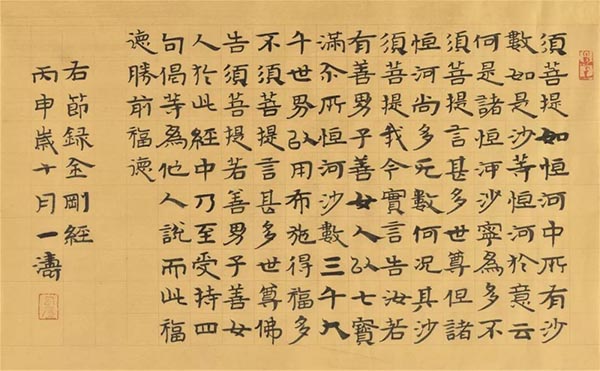 須菩提如恒河中所有沙
數如是沙等恒河於意云
何是諸恒河沙寧為多不
須菩提言甚多世尊但諸
恒河尚多无數何況其沙
須菩提我今實言告汝若
有善男子善女人以七寶
滿尒所恒河沙數三千大
千世界以用布施得福多
不須菩提言甚多世尊佛
告須菩提若善男子善女
人於此經中乃至受持四
句偈等為他人說而此福
德勝前福德
右節録金剛經
丙申歲十月一濤